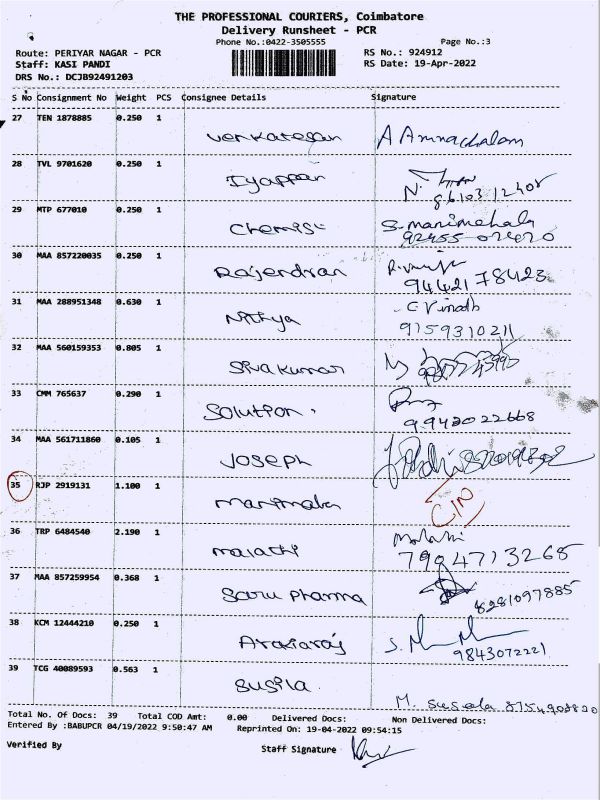 THE PROFESSIONAL COURIERS, Coimbatore
Delivery Runsheet - PCR
Phone No.:0422-3505555
Page No.:3
Route: PERIYAR NAGAR - PCR
RS No.: 924912
Staff: KASI PANDI
RS Date: 19-Apr-2022
DRS No.: DCJB92491203
S No Consignment No Weight PCS Consignee Details Signature
27 TEN 1878885 0.250 1
Venkatesan A Arunachalam
28 TVL 9701620 0.250 1
Iyappan N.
86103 12408
29 MTP 677010 0.250 1
Chemist S. manimehala
92455 07070
30 MAA 857220035 0.250 1
Rajendran
94421 78423
31 MAA 288951348 0.630 1
Nithya C Vinoth
9159310211
32 MAA 560159353 0.805 1
Sivakumar
33 CMM 765637 0.290 1
Solution.
9943022668
34 MAA 561711860 0.105 1
Joseph
35 RJP 2919131 1.100 1
Manimala CIN
36 TRP 6484540 2.190 1
malathi
7904713268
37 MAA 857259954 0.368 1
Saru Pharma
8281097885
38 KCM 12444210 0.250 1
Arasaraj S.
9843072221
39 TCG 40089593 0.563 1
Susila
M. Suseala 8754908820
Total No. Of Docs: 39 Total COD Amt: 0.00 Delivered Docs: Non Delivered Docs:
Entered By :BABUPCR 04/19/2022 9:50:47 AM Reprinted On: 19-04-2022 09:54:15
Verified By Staff Signature